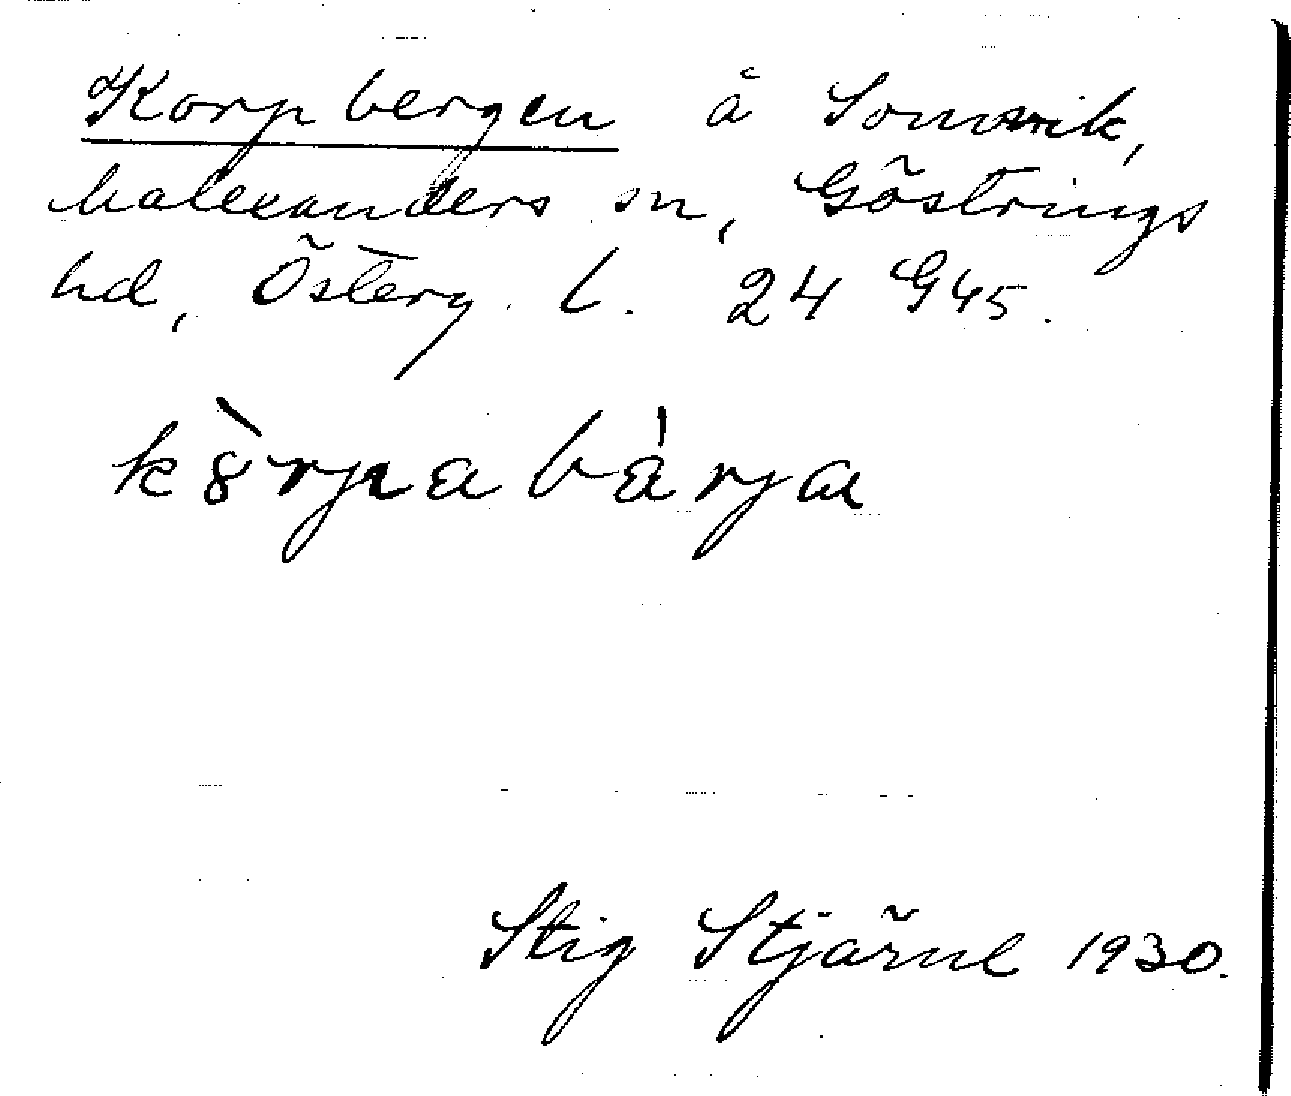 Korpbergen å Somvik,
Malexanders sn, Göstrings
hd, Österg. l. 24 G45.
kòrpabàrja
Stig Stjärne 1930.